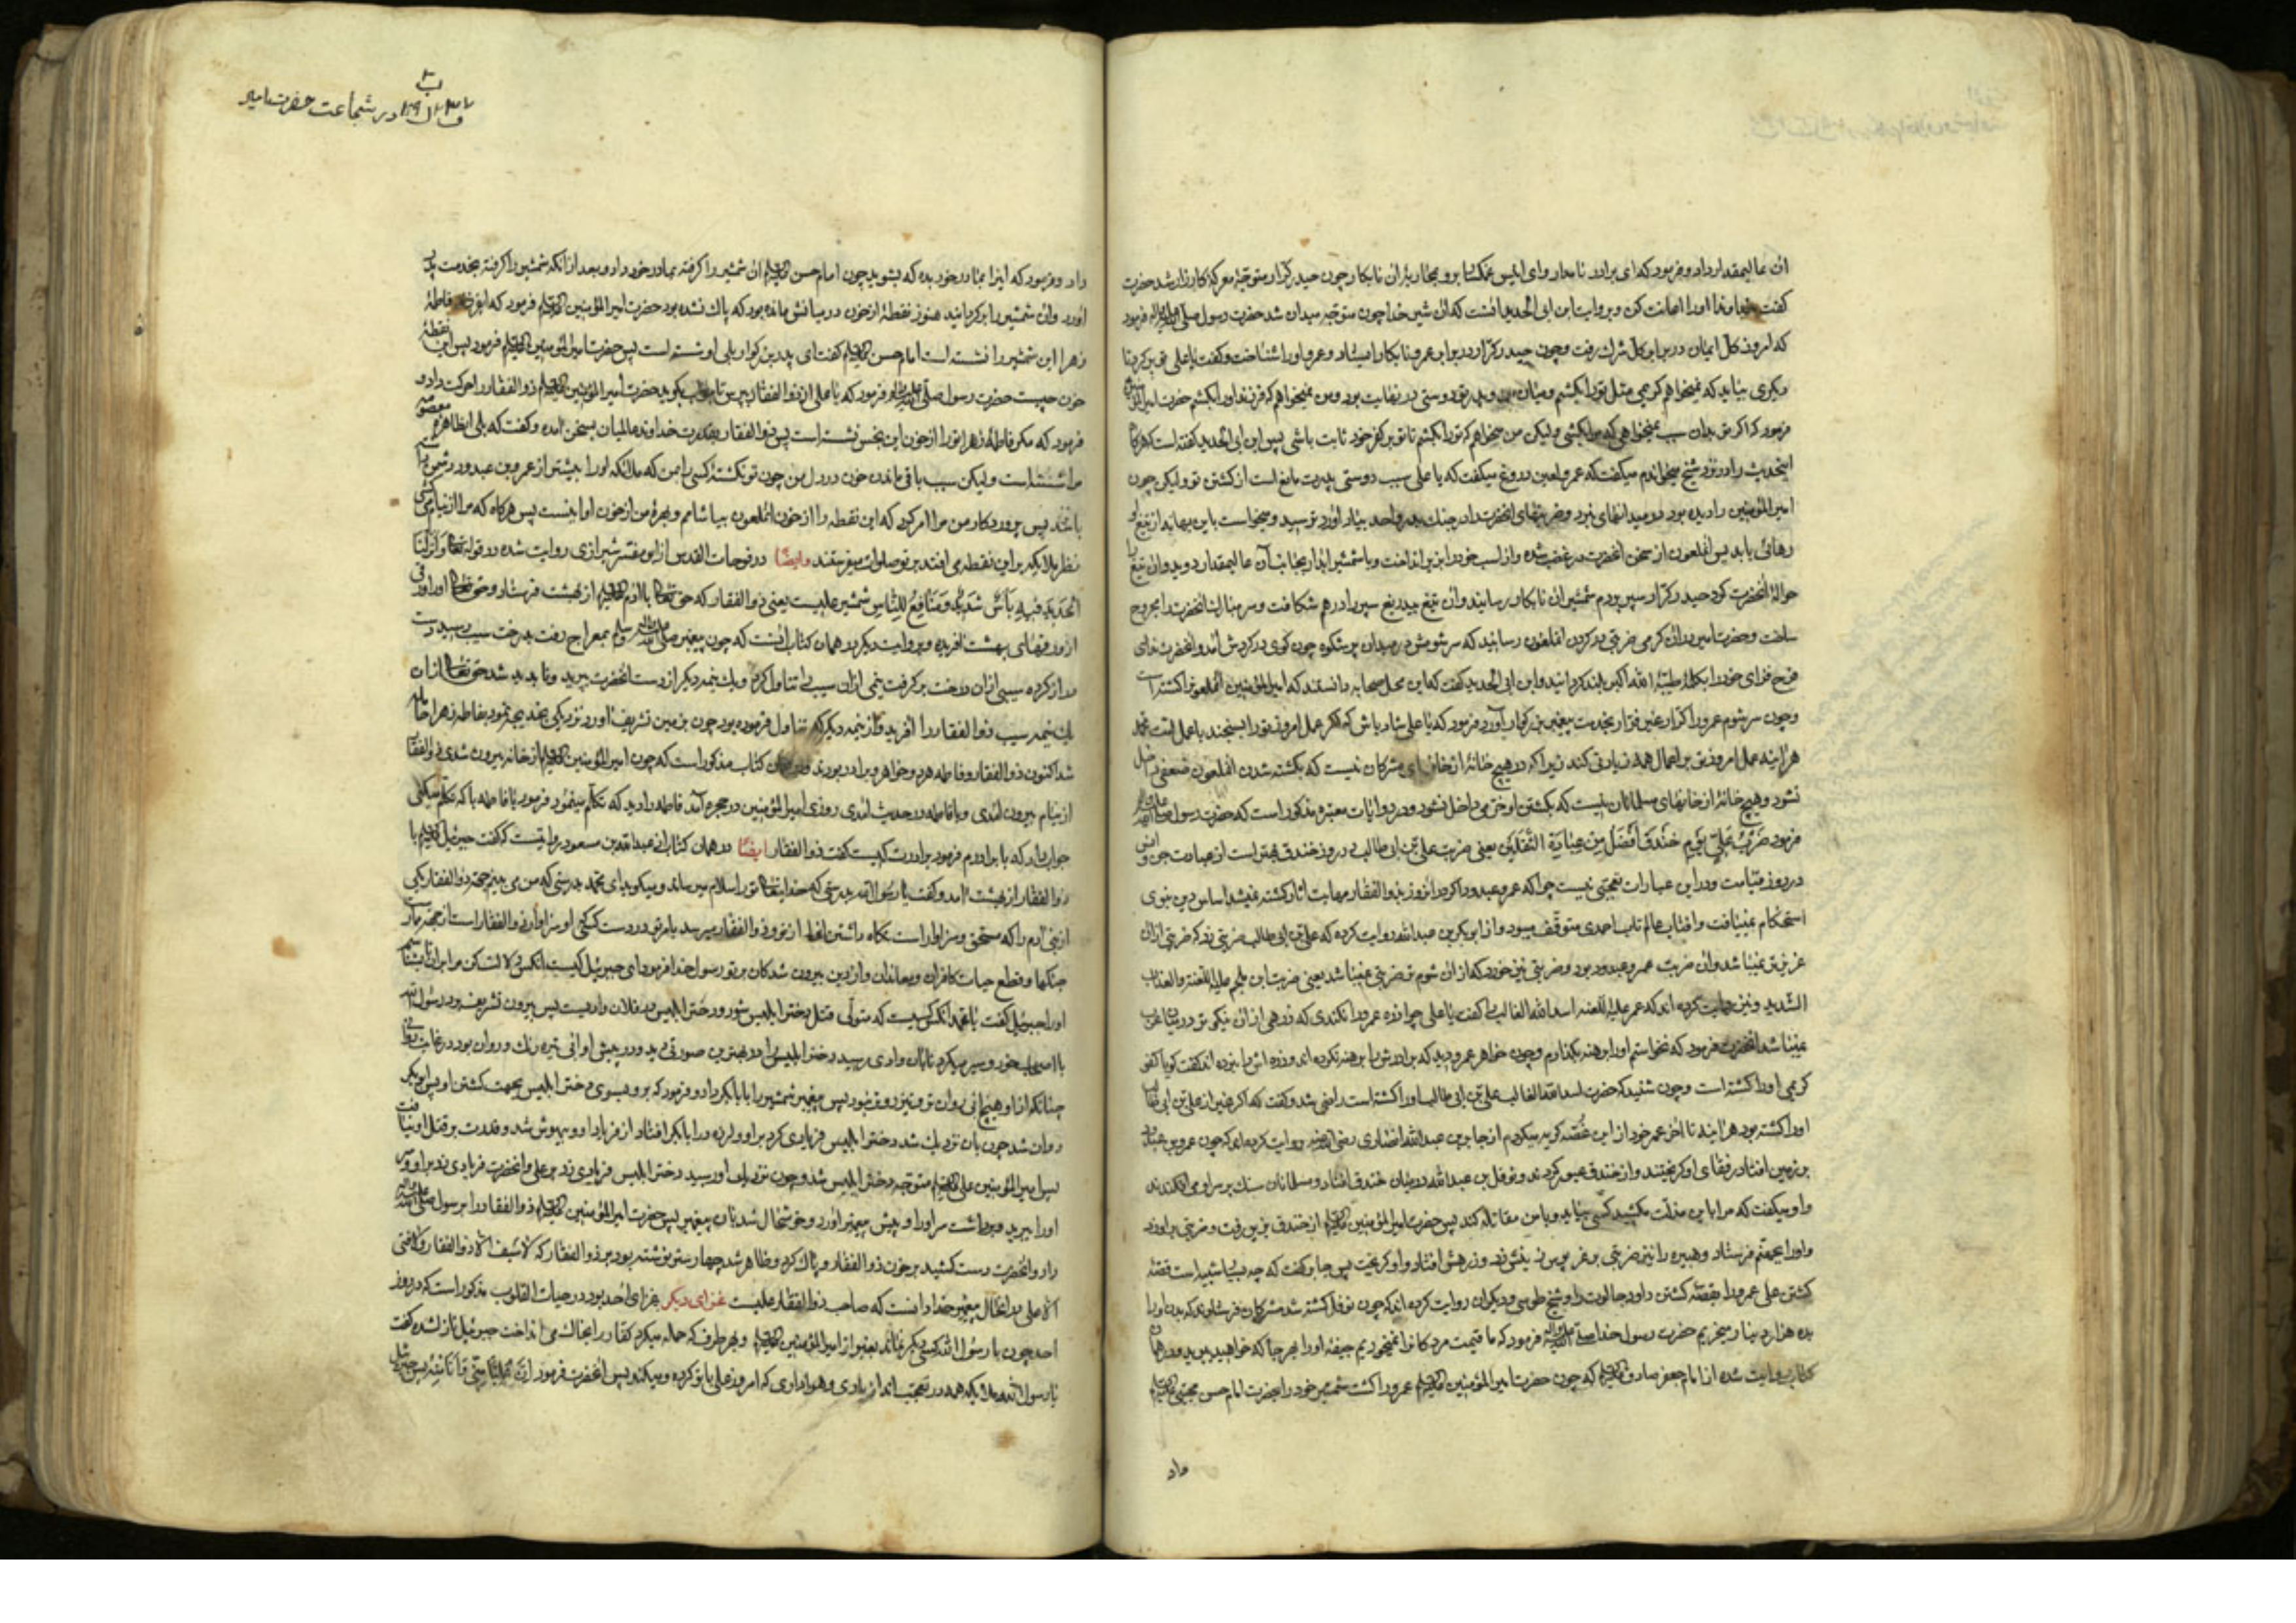 ان عالیمقدار داد و فرمود که ای برادر نامدار وای انیس غمگسار برو بمحاربۀ ان نابکار چون حیدر کرار متوجۀ معرکۀ کارزار شد حضرت
گفت خداوندا اورا اعانت کن و بروایت ابن ابی الحدید انست که ان شیر خدا چون متوجه میدان شد حضرت رسول صلی الله علیه واله فرمود
که امروز کل ایمان در برابر کل شرک رفت و چون حیدر کرار در برابر عمرو نابکار ایستاد و عمرو اورا شناخت و گفت یا علی تو برگرد تا
دیگری بیاید که نمیخواهم کریمی مثل تو را بکشم و میان من و پدر تو دوستی در نهایت بود و من نمیخواهم که فرزند اورا بکشم حضرت امیر
فرمود که اگر تو بدان سبب نمیخواهی که مرا بکشی ولیکن من میخواهم که تو را بکشم تا تو بر کفر خود ثابت باشی پس ابن ابی الحدید گفته است که هرگاه
اینحدیث را در نزد شیخ میخواندم میگفت که عمرو لعین دروغ میگفت که یا علی سبب دوستی پدرت مانع است از کشتن تو ولیکن چون
امیرالمؤمنین را دیده بود در میدانهای نبرد و ضربتهای انحضرت را در جنک بدر و احد بیاد اورد ترسید و میخواست باین بهانه از تیغ او
رهائی یابد پس انملعون از سخن انحضرت در غضب شده و از اسب خود را بزیر انداخت و با شمشیر ابدار بجانب آن عالیمقدار دوید وان تیغ را
حوالۀ انحضرت کرد حیدر کرار سپر بر دم شمشیر ان نابکار رسانید وان تیغ بیدریغ سپر را درهم شکافت و سر مبارک انحضرت را مجروح
ساخت و حضرت امیر دران گرمی ضربتی بر گردن انملعون رسانید که سر شومش در میدان پر شکوه چون گوی در گردش آمد و انحضرت ندای
فتح فزای خود را بکلمۀ طیبۀ الله اکبر بلند گردانید و ابن ابی الحدید گفت که این محل صحابه دانستند که امیرالمؤمنین انملعون را کشته است
وچون سر شوم عمرو را کرار غیر فرار بخدمت پیغمبر بزرکوار آورد فرمود که یا علی شاد باش که اگر عمل امروز تو را بسنجند با عمل امت محمد
هراینه عمل امروز تو بر اعمال همه زیادتی کند زیرا که در هیچ خانۀ از خانهای مشرکان نیست که بکشته شدن انملعون ضعفی داخل
نشود و هیچ خانۀ از خانهای مسلمانان نیست که بکشتن او خرمی داخل نشود و در روایات معتبره مذکور است که حضرت رسول صلی الله علیه واله
فرمود ضَرْبَةُ عَلِیٍّ یَوْمَ خَنْدَق اَفْضَلُ مِنْ عِبادَةِ الثَّقَلَیْنِ یعنی ضربت علی بن ابی طالب در روز خندق بهتر است از عبادت جن و انس
در روز قیامت و در این عبارات تعجبی نیست چرا که عمرو عبدود را گر در انروز بذوالفقار مهابت اثار کشته نمیشد اساس دین نبوی
استحکام نمییافت وافتاب عالمتاب احمدی متوقف میبود و از ابوبکر بن عبدالله روایت کرده که علی بن ابی طالب ضربتی زد که ضربتی ازان
عزیزتر نمیباشد وان ضربت عمرو عبدود بود و ضربتی نیز خورد که ازان شوم تر ضربتی نمیباشد یعنی ضربت ابن ملجم علیه اللعنه والعذاب
الشدید و نیز روایت کرده اند که عمر علیه اللعنه اسد الله الغالب را گفت یا علی چرا زره عمرو را نکندی که زرهی ازان نیکوتر در میان عرب
نمیباشد انحضرت فرمود که نخواستم اورا برهنه بگذارم و چون خواهر عمرو دید که برادرش را برهنه نکرده اند و زره اش را نبرده اند گفت گویا کفو
کریمی اورا کشته است و چون شنید که حضرت اسد الله الغالب علی بن ابی طالب اورا کشته است راضی شد و گفت که اگر غیر از علی بن ابی طالب
اورا کشته بود هراینه تا اخر عمر خود از این غصه گریه میکردم از جابر بن عبدالله انصاری رضی الله عنه روایت کرده اند که چون عمرو بن عبدود
بر زمین افتاد رفقای او گریختند و از خندق عبور کردند و نوفل بن عبدالله در میان خندق افتاد و مسلمانان سنک بر سر او می افکندند
و او میگفت که مرا باین مذلت مکشید کسی بیاید و با من مقاتله کند پس حضرت امیرالمؤمنین علیه السلم از خندق بزیر رفت و ضربتی براو زد
واورا بجهنم فرستاد و هبیره را نیز ضربتی بر قربوس زینش زد و زرهش افتاد و او گریخت پس جابر گفت که چه بسیار شبیه است قصۀ
کشتن علی عمرو را بقصۀ کشتن داود جالوت را و شیخ طوسی و دیگران روایت کرده اند که چون نوفل کشته شد مشرکان فرستادند که بدن اورا
بده هزار دینار میخریم حضرت رسول خدا صلی الله علیه واله فرمود که ما قیمت مردگان را نمیخوریم جیفۀ اورا بهرجا که خواهید ببرید و در همان
کتاب روایت شده از امام جعفر صادق علیه السلم که چون حضرت امیرالمؤمنین علیه السلم عمرو را کشت شمشیر خود را بحضرت امام حسن مجتبی علیه السلم
داد
در شجاعت حضرت امیر
داد و فرمود که اینرا بمادر خود بده که بشوید چون امام حسن علیه السلم ان شمشیر را گرفته بمادر خود داد و بعد ازانکه شمشیر را گرفته بخدمت پدر
اورد وان شمشیر را برگردانید هنوز نقطۀ از خون در میانش مانده بود که پاک نشده بود حضرت امیرالمؤمنین علیه السلم فرمود که ای فرزند فاطمۀ
زهرا این شمشیر را نشسته است امام حسن علیه السلم گفت ای پدر بزرگوار بلی او شسته است پس حضرت امیرالمؤمنین علیه السلم فرمود پس این نقطۀ
خون چیست حضرت رسول صلی الله علیه واله فرمود که یا علی از ذوالفقار بپرس تا جواب بگوید حضرت امیرالمؤمنین علیه السلم ذوالفقار را حرکت داد و
فرمود که مگر فاطمۀ زهرا تو را از خون این نجس نشسته است پس ذوالفقار بقدرت خداوند عالمیان بسخن امده و گفت که بلی انطاهره معصومه
مرا شسته است ولیکن سبب باقی ماندن خون در دل من چون تو نکشتۀ کسی را بمن که ملائکه اورا بیشتر از عمرو بن عبدود دشمن داشته
باشند پس پروردگار من مرا امر کرد که این نقطه را از خون انملعون بیاشامم و بهرۀ من از خون او اینست پس هرگاه که مرا از نیام می کشی
نظر ملائکه بر این نقطه می افتد بر تو صلوات میفرستند وایضًا در فتوحات القدس از ابن مفسر شیرازی روایت شده در قوله تعالی وَاَنْزَلْنَا
الْحَدیدَ فیهِ بَأسٌ شَدیدٌ وَمَنافِعُ لِلنّاسِ شمشیر علیست یعنی ذوالفقار که حق تعالی با ادم علیه السلم از بهشت فرستاد و حق تعالی اورا از
از ورقهای بهشت افریده و بروایت دیگر در همان کتاب انست که چون پیغمبر صلی الله علیه واله وسلم بمعراج رفت بدرخت سیب رسید دست
دراز کرده سیبی ازان درخت برگرفت نیمی ازان سیب را تناول کرد و یک نیمه دیگر از دست انحضرت بپرید و ناپدید شد حق تعالی ازان
یک نیمه سیب ذوالفقار را افرید واز نیمه دیگر که تناول فرموده بود چون بزمین تشریف اورد نزدیکی بخدیجه نمود بفاطمه زهرا حامله
شد اکنون ذوالفقار و فاطمه هردو خواهر و برادر بودند و در همان کتاب مذکور است که چون امیرالمؤمنین علیه السلم از خانه بیرون شدی ذوالفقار
از نیام بیرون امدی و با فاطمه در حدیث امدی روزی امیرالمؤمنین در حجره آمد فاطمه را دید که تکلم مینمود فرمود یا فاطمه با که تکلم میکنی
جواب داد که با برادرم فرمود برادرت کیست گفت ذوالفقار ایضًا در همان کتاب از عبدالله بن مسعود روایتست که گفت جبرئیل علیه السلم با
ذوالفقار از بهشت امد و گفت یا رسول الله بدرستی که خدایتعالی تو را سلام میرساند و میگوید ای محمد بدرستی که من می بینم جهۀ ذوالفقار یکی
از بنی ادم را که مستحق و سزاوار است نگاه داشتن انرا از تو و ذوالفقار میرسد بامر تو در دست کسی که او سزاوار ذوالفقار است از جهۀ مبارزت
جنگها و قطع حیات کافران و معاندان و از دین بیرون شدگان بر تو رسول خدا فرمود ای جبرئیل کیست انکس دلالت کن مرا بران تا بشناسم
اورا جبرئیل گفت یا محمد انکس کیست که متولی قتل دختر ابلیس شود و دختر ابلیس در فلان وادیست پس بیرون تشریف برد رسول الله
با اصحاب خود و سیر میکرد تا بان وادی رسید دختر ابلیس را در بهترین صورتی دید و در پیش او ابی تیره رنک و روان بود در غایت روانی
چنانکه از او هیچ ابی روان تر و تیزرو تر نبود پس پیغمبر شمشیر را بابابکر داد و فرمود که برو بسوی دختر ابلیس بجهت کشتن او پس ابوبکر
روان شد چون بان نزدیک شد دختر ابلیس فریادی کرد براو و لرزه در ابابکر افتاد از فریاد او و بیهوش شد و قدرت بر قتل او نیافت
پس امیرالمؤمنین علی علیه السلم متوجه دختر ابلیس شد و چون نزدیک او رسید دختر ابلیس فریادی زد بر علی و انحضرت فریادی زد براو و سر
اورا ببرید و برداشت سر اورا و پیش پیغمبر اورد و خوشحال شد بان پیغمبر پس حضرت امیرالمؤمنین علیه السلم ذوالفقار را برسول صلی الله علیه واله
داد و انحضرت دست کشید بر خون ذوالفقار و پاک کرد و ظاهر شد چهار سطر نوشته بود بر ذوالفقار که لا سَیف الّا ذوالفقار ولا فتی
الّا علی در انحال پیغمبر خدا دانست که صاحب ذوالفقار علیست غزای دیگر غزای احد بود در حیات القلوب مذکور است که در روز
احد چون با رسول الله کسی دیگر نماند بغیر از امیرالمؤمنین علیه السلم و بهر طرف که حمله میکرد کفار را بخاک می انداخت جبرئیل نازل شده گفت
یا رسول الله ملائکه همه در تعجب اند از یاری و هواداری که امروز علی با تو کرده و میکند پس انحضرت فرمود اِنَّ عَلیًّا مِنّی وَاَنَا مِنْهُ پس جبرئیل